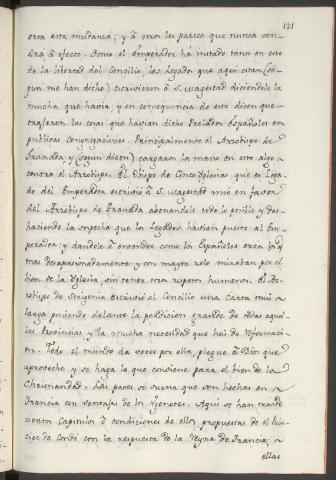 121
erra esta mudanza; y à otros les parece que nunca ven-
drà à efecto. Como el Emperador há instado tanto en esto
de la libertad del Concilio, los Legados que aqui estan (se-
gun me han dicho) escrivieron à S. Magestad diciendole la
mucha que havia; y en consequencia de esto dicen que
truxeron las cosas que havian dicho Prelados Españoles en
publicas Congregaciones. Principalmente el Arzobispo de
Granada, y (segun dicen) cargaron la mano en esto algo
contra el Arzobispo. El Obispo de Cinco Yglesias que es Lega-
do del Emperador escrivió à S. Magestad mui en favor
del Arzobispo de Granada abonandole todo lo posible y des-
haciendo la sospecha que los Legados havian puesto al Em-
perador; y dandole à entender como los Españoles eran los que
mas desapasionadamente y con mayor zelo miraban por el
bien de la Yglesia, sin tener otro respeto humano. El Ar-
zobispo de Strigonia escrivió al Concilio una Carta mui
larga poniendo delante la perdicion grande de todas aque-
llas Provincias y la mucha necesidad que hai de Reformaci-
on. Todo el mundo da voces por ella, plegue à Dios que
aproveche y se haga lo que conviene para el bien de la
Christiandad. Las paces se suena que son hechas en
Francia con ventajas de los Ugonotes. Aqui se han traido
ciertos Capitulos ò condiciones de ellos, propuestas de el Prin-
cipe de Condé con la respuesta de la Reyna de Francia;
ellas